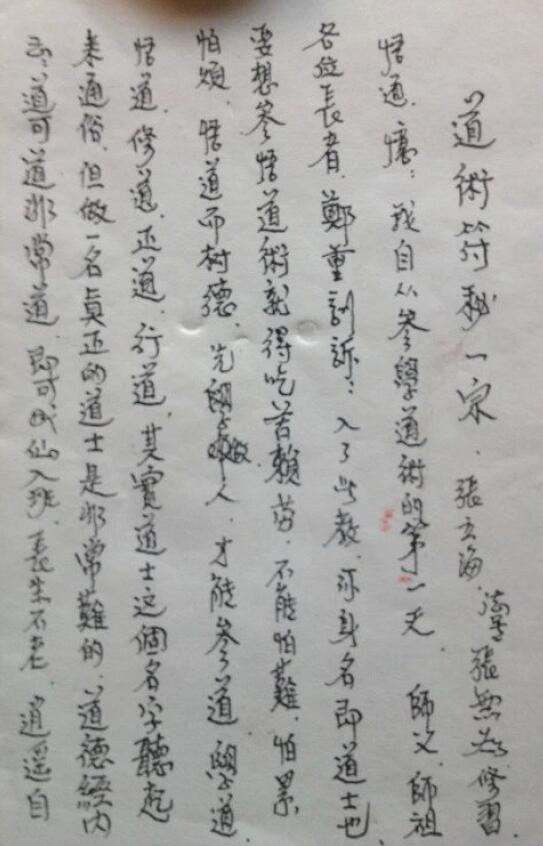 道術符秘一宗 張玄海 法号 張無為 修習
悟道 憶：我自从參學道術的第一天 師父 師祖
各位長者 鄭重訓訴：入了此教 你身名即道士也
要想參悟道術就得吃苦賴劳 不能怕難 怕累
怕煩 悟道而树德 先學做人 才能參道 學道
悟道 修道 正道 行道 其實道士这個名字聽起
来通俗 但做一名真正的道士是非常難的 道德經内
云：道可道非常道 即可成仙入班 長生不老 逍遥自